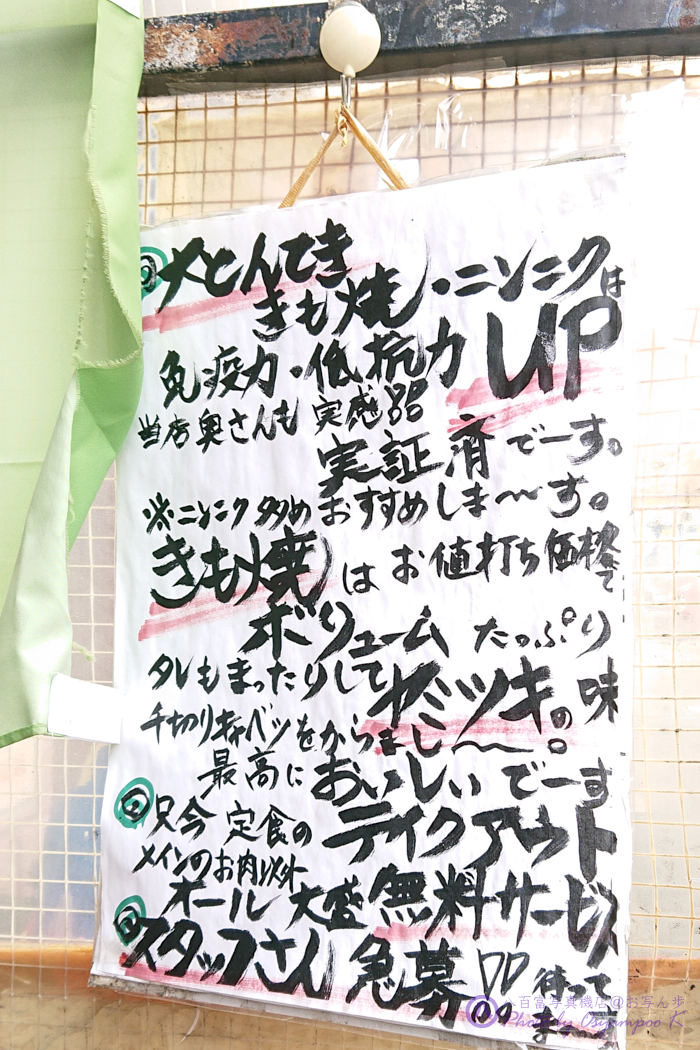 大とんてき
きも焼・ニンニクは
免疫力・低抗力 UP
当店奥さんも 実感
実証済でーす。
※ニンニク多めおすすめしま〜す。
きも焼は お値打ち価格で
ボリューム たっぷり
タレもまったりして ヤミツキの味
千切りキャベツをからまし〜。
最高に おいしいでーす
只今 定食の テイクアウト
メインのお肉以外
オール 大盛 無料サービス
スタッフさん 急募 待ってまーす
八百富写真機店@お写ん歩
Photo by Osyampoo K